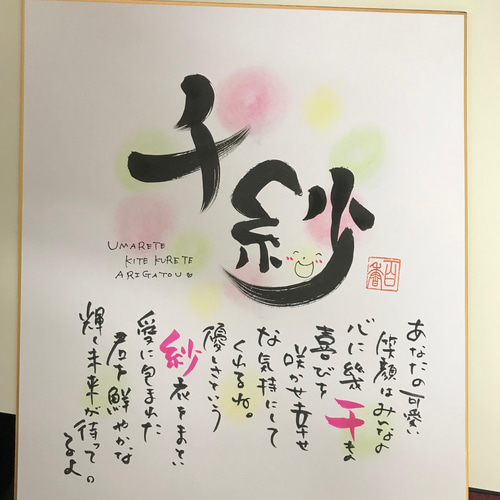 千紗
UMARETE
KITE KURETE
ARIGATOU
あなたの可愛い
笑顔はみんなの
心に幾千もの
喜びを
咲かせ幸せ
な気持にして
くれるね。
優しさという
紗衣をまとい
愛に包まれた
君を鮮やかな
輝く未来が待って
るよ。